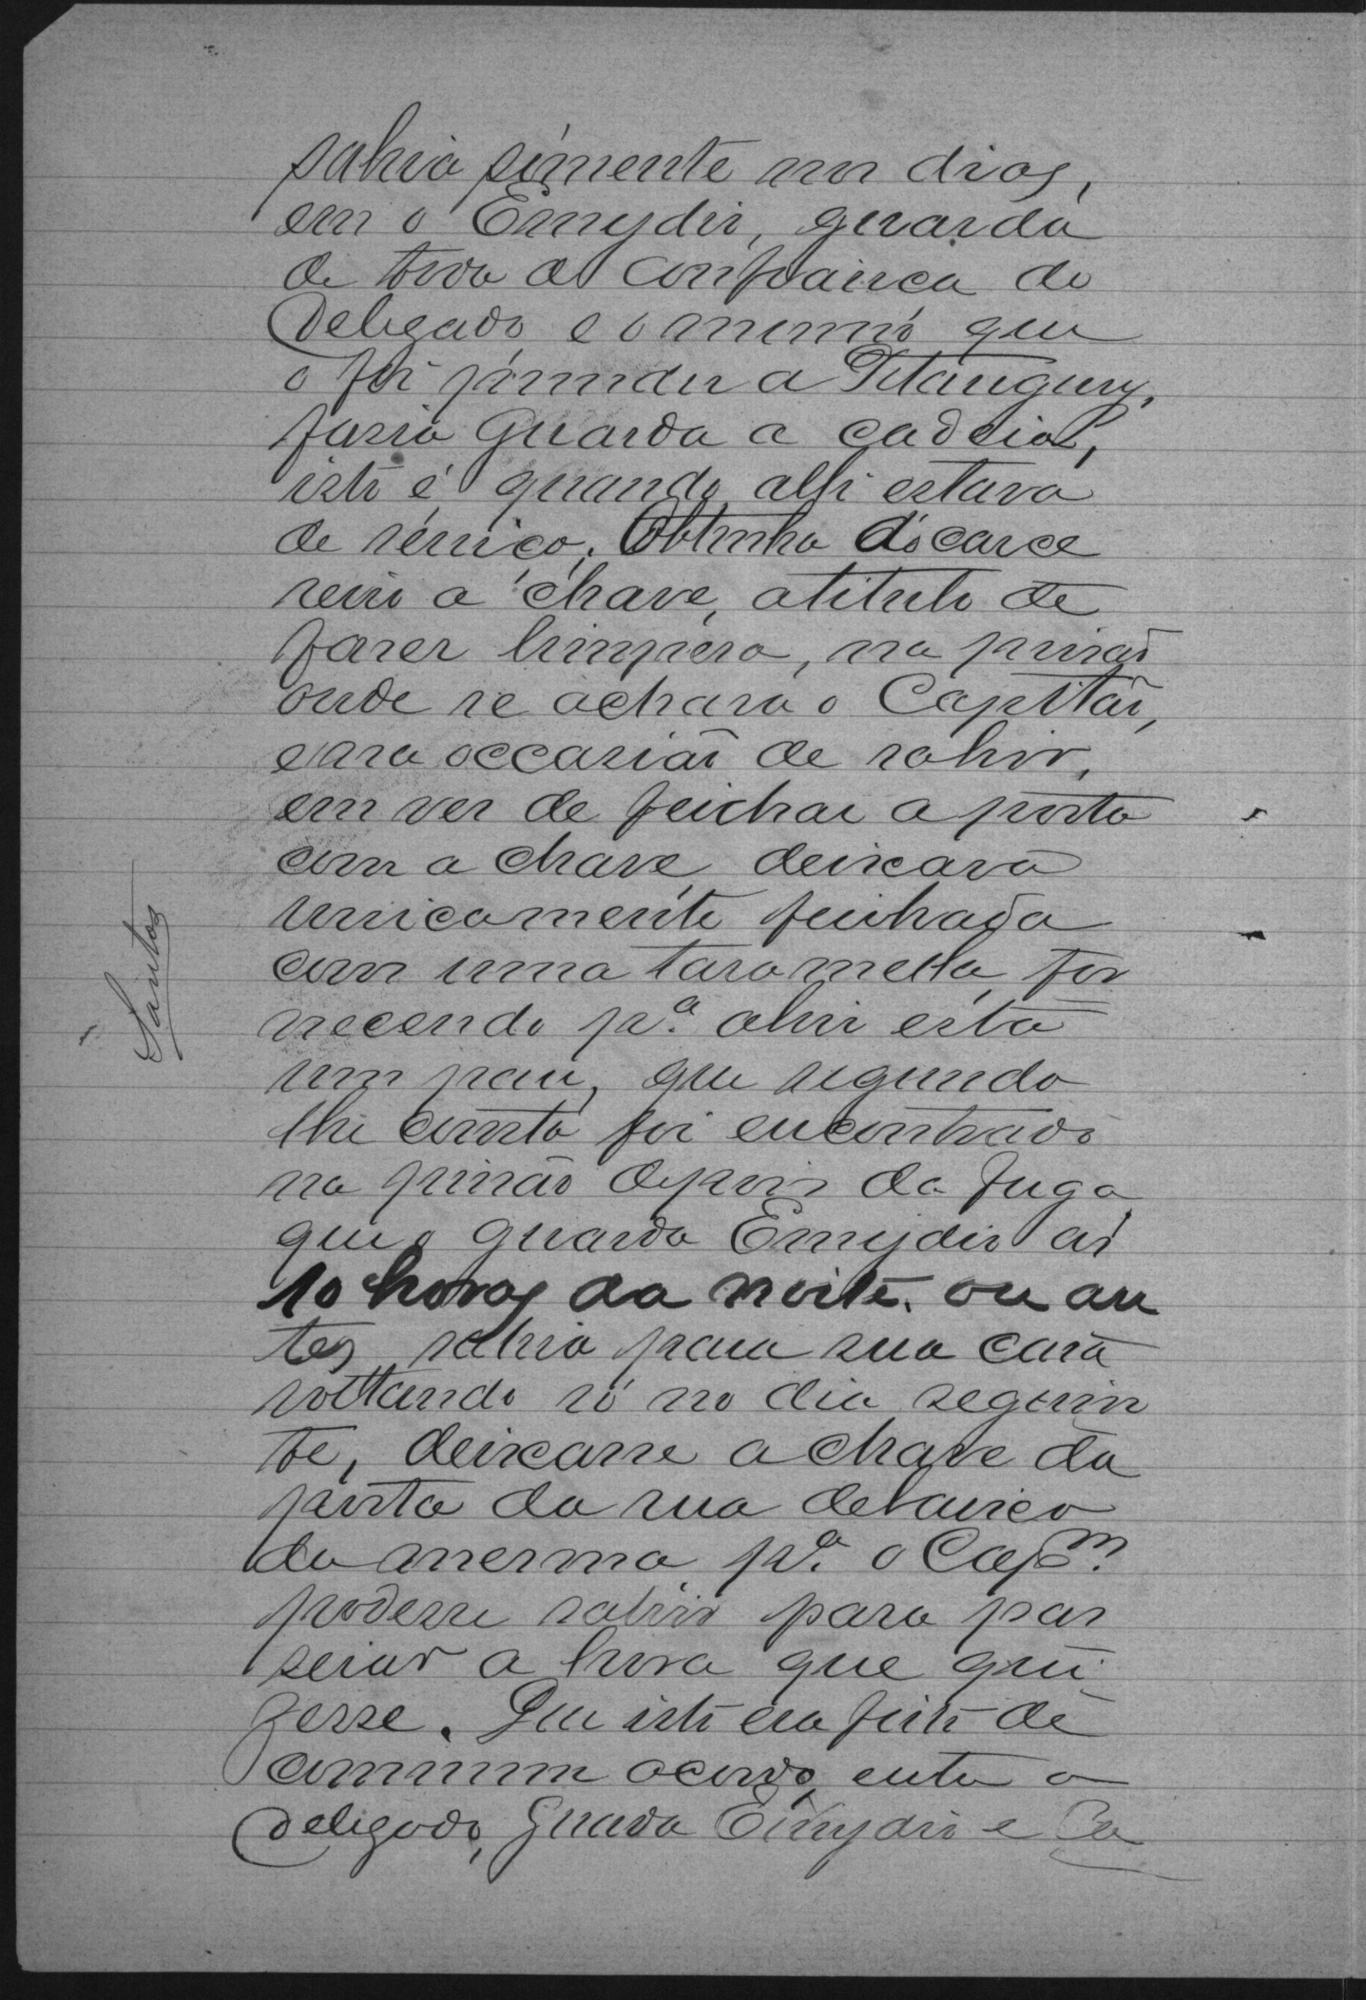 sahia sómente nos dias,
em o Emydio, guarda
de toda a confiança do
Delegado e o mesmo que
o foi prender a Pitanguy,
fazia guarda a cadeia,
isto é, quando alli estava
de serviço. Obtinha do carce
reiro a chave, a titulo de
fazer limpeza, na prisão
onde se achava o Capitão,
e na occasião de sahir,
em vez de feichar a porta
com a chave, deixava
unicamente feichada
com uma taramella, for
necendo pª abrir esta
um pau, que segundo
lhe consta foi encontrado
na prisão depois da fuga,
que o guarda Emydio as
10 horas da noite, ou an
tes sahia para sua casa
voltando só no dia seguin
te, deixasse a chave da
porta da rua debaixo
da mesma pª o Capm
podesse sahir para pas
seiar a hora que qui
zesse. Que isto era feito de
commum acordo, entre o
Delegado, Guarda Emydio e Ca
Santos